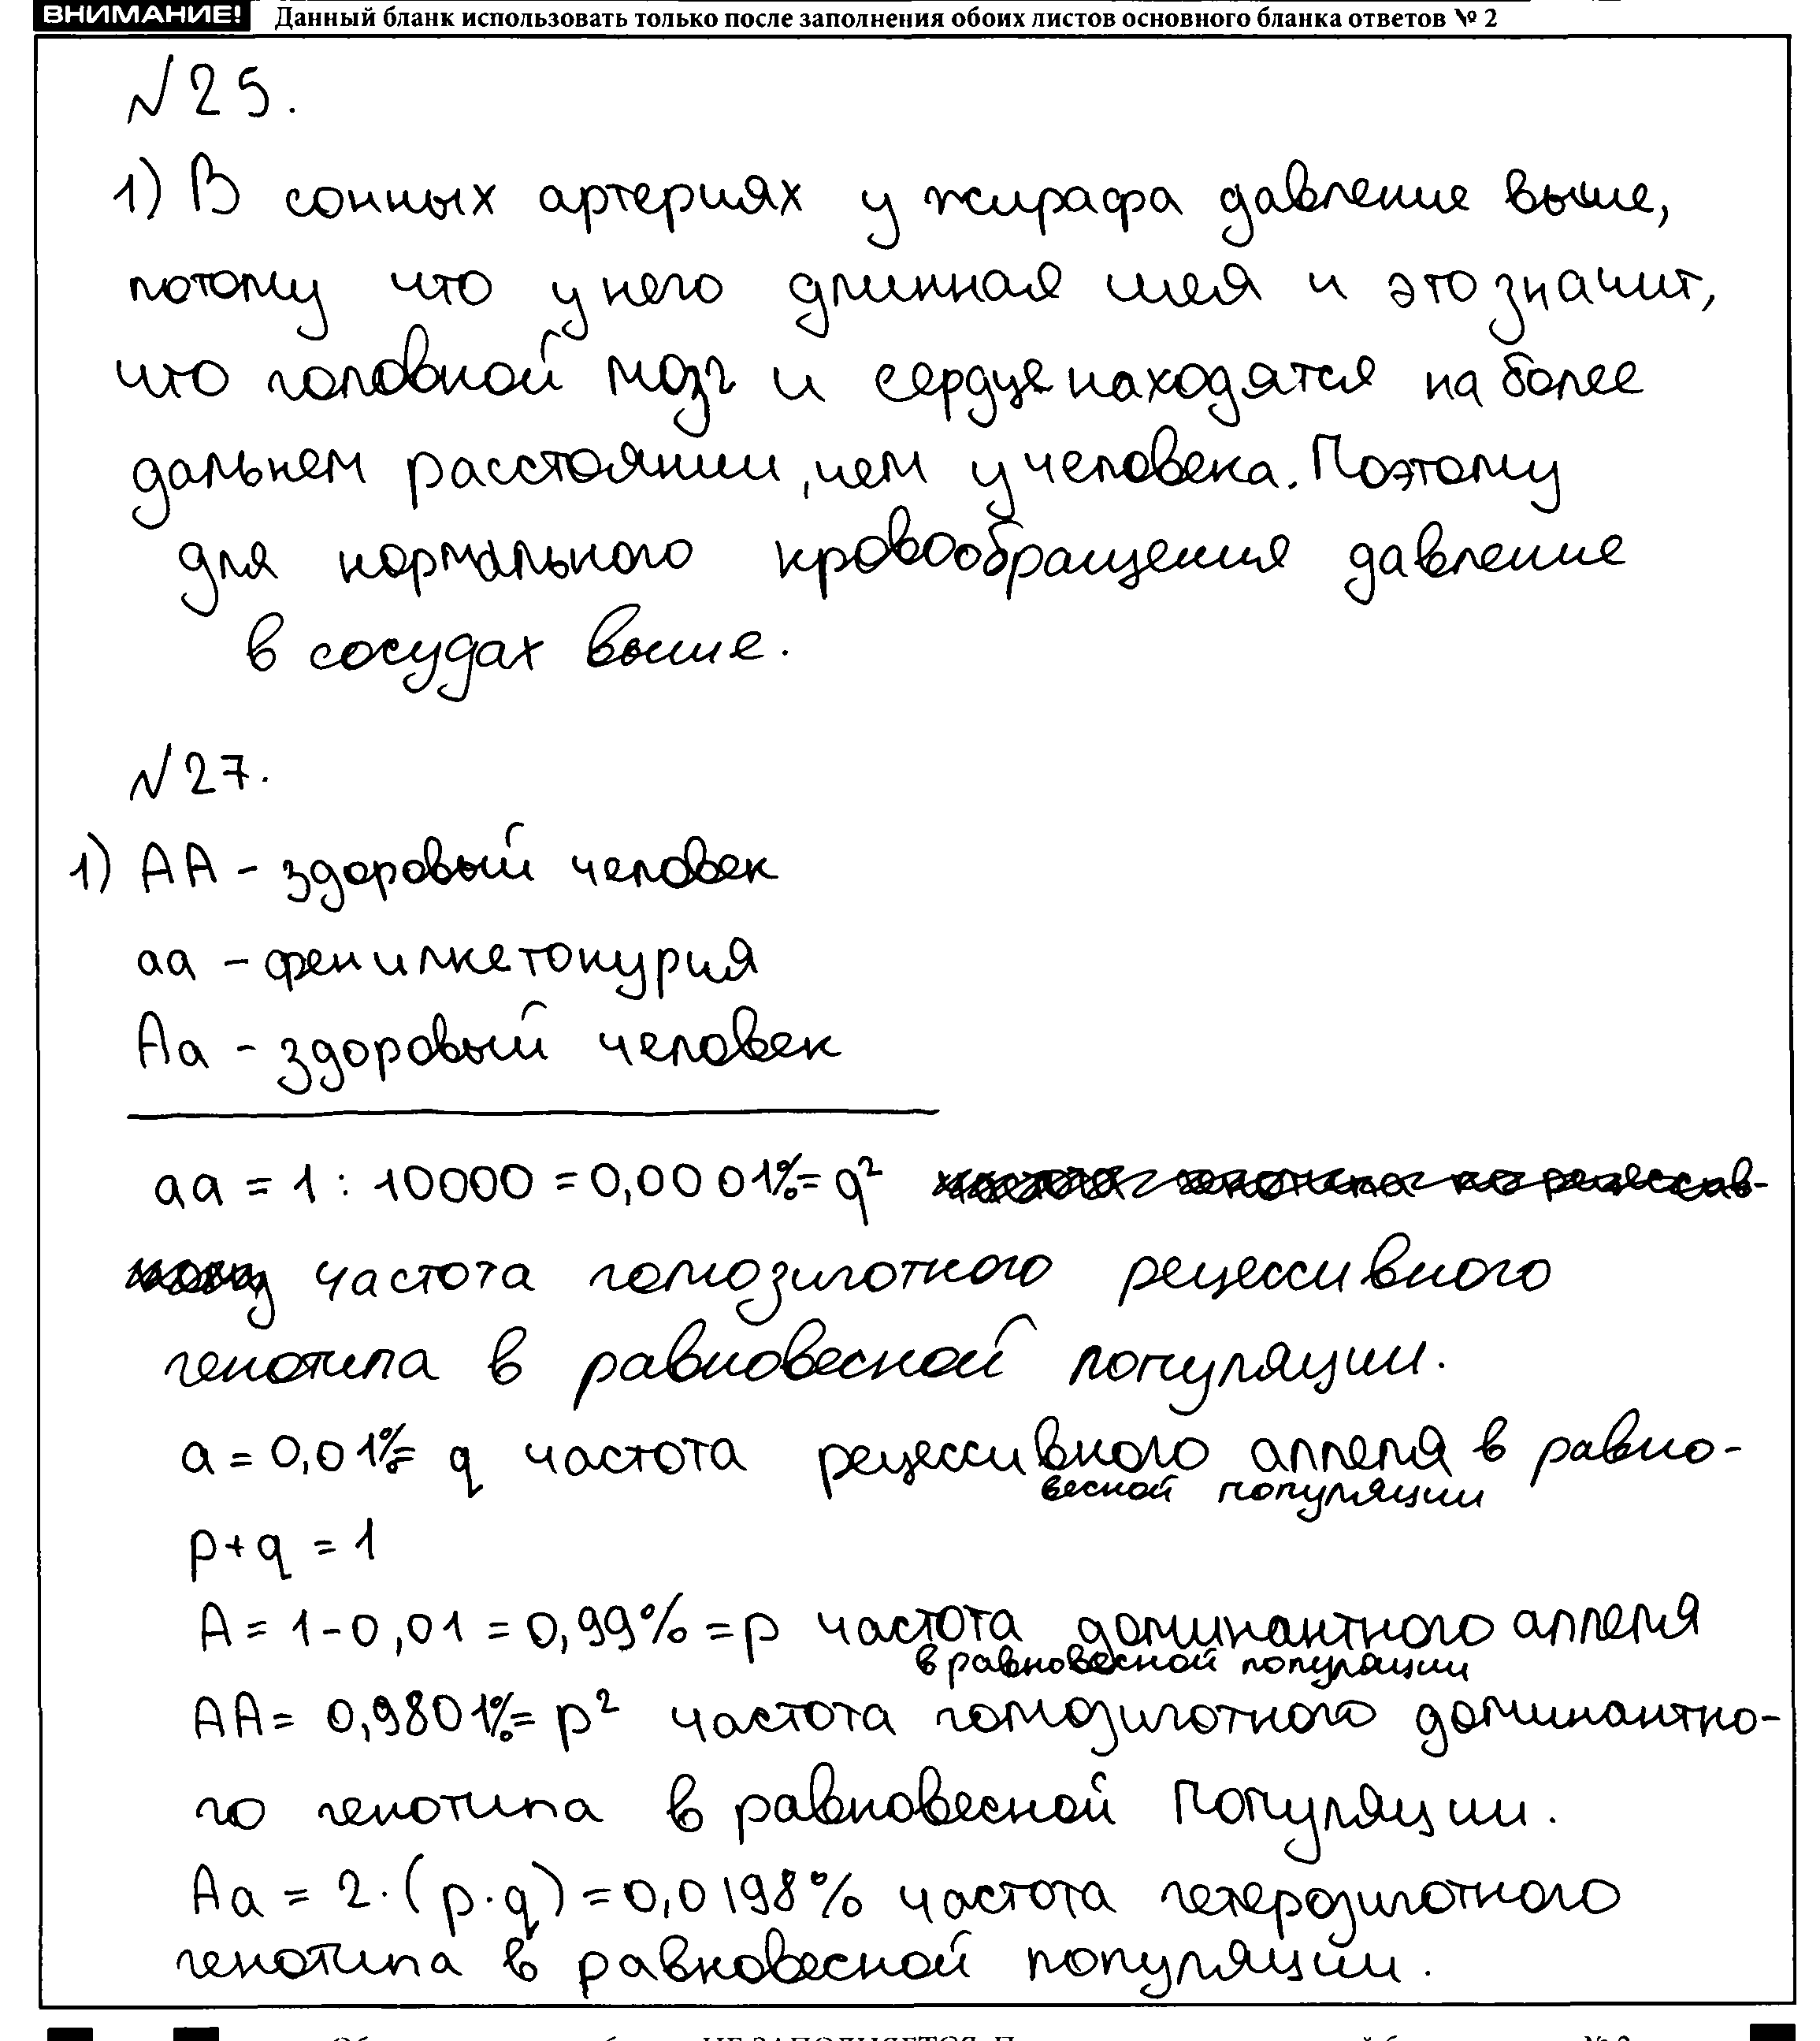 ВНИМАНИЕ! Данный бланк использовать только после заполнения обоих листов основного бланка ответов № 2
№25.
1) В сонных артериях у жирафа давление выше,
потому что у него длинная шея и это значит,
что головной мозг и сердце находятся на более
дальнем расстоянии, чем у человека. Поэтому
для нормального кровообращения давление
в сосудах выше.
№27.
1) AA - здоровый человек
aa - фенилкетонурия
Aa - здоровый человек
aa = 1 : 10000 = 0,0001% = q²
частота гомозиготного рецессивного
генотипа в равновесной популяции.
a = 0,01% = q частота рецессивного аллеля в равно-
весной популяции
p+q = 1
A = 1-0,01 = 0,99% = p частота доминантного аллеля
в равновесной популяции
AA = 0,9801% = p² частота гомозиготного доминантно-
го генотипа в равновесной популяции.
Aa = 2·(p·q) = 0,0198% частота гетерозиготного
генотипа в равновесной популяции.